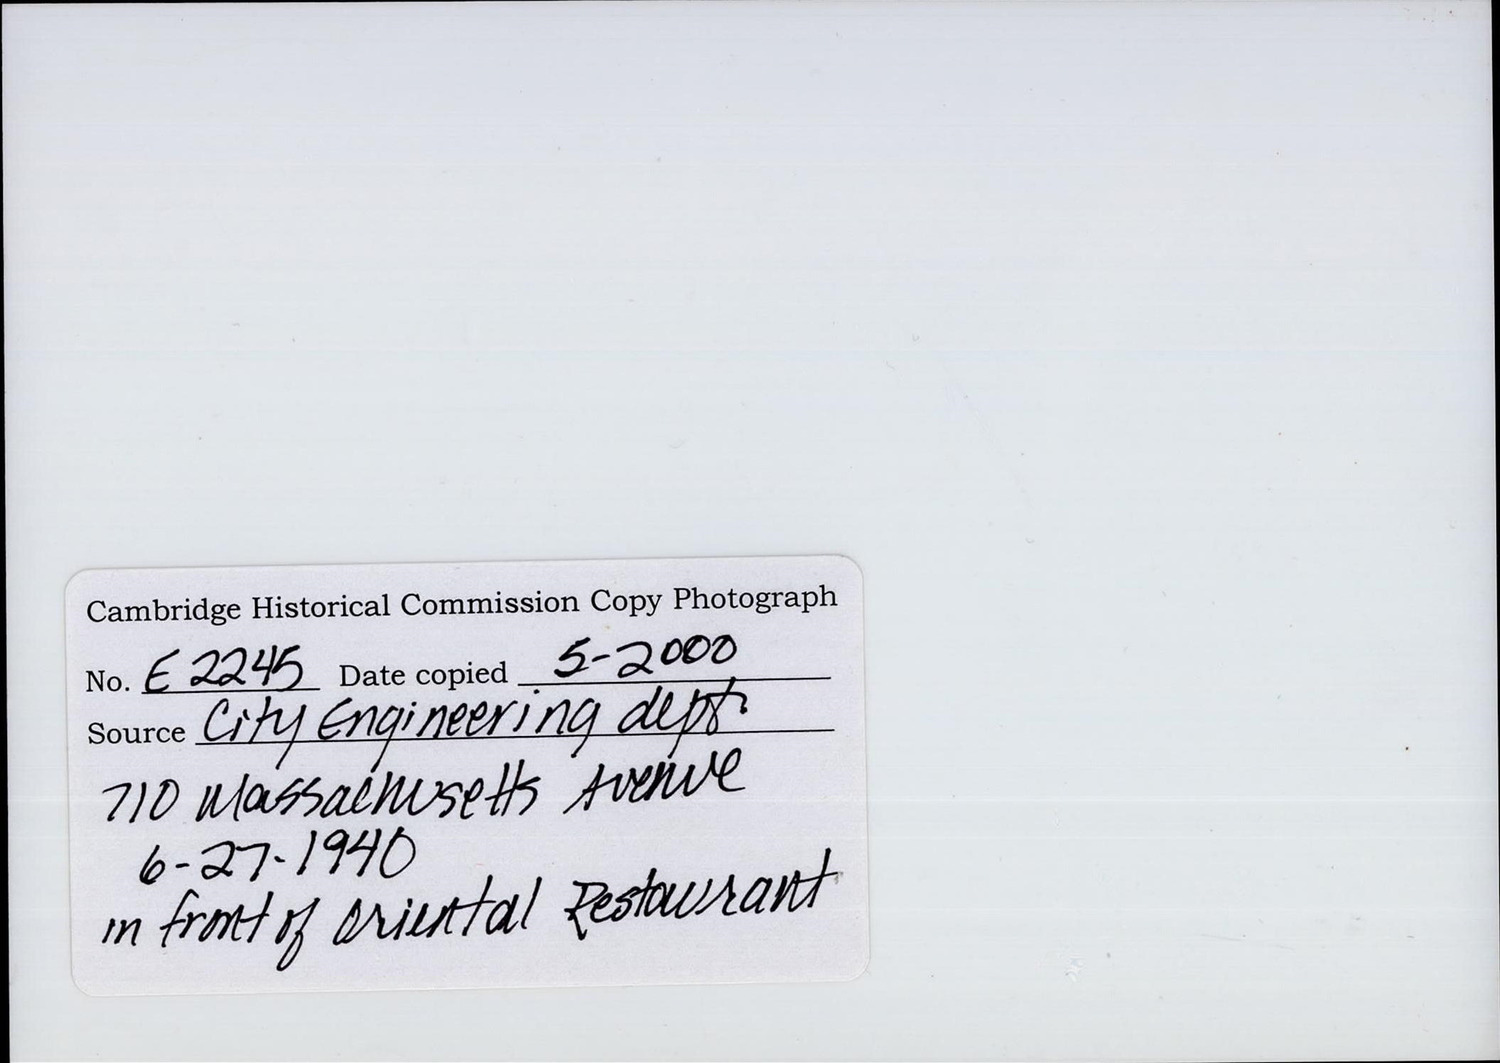 Cambridge Historical Commission Copy Photograph
No. E2245 Date copied 5-2000
Source City Engineering dept.
710 Massachusetts Avenue
6-27-1940
in front of Oriental Restaurant